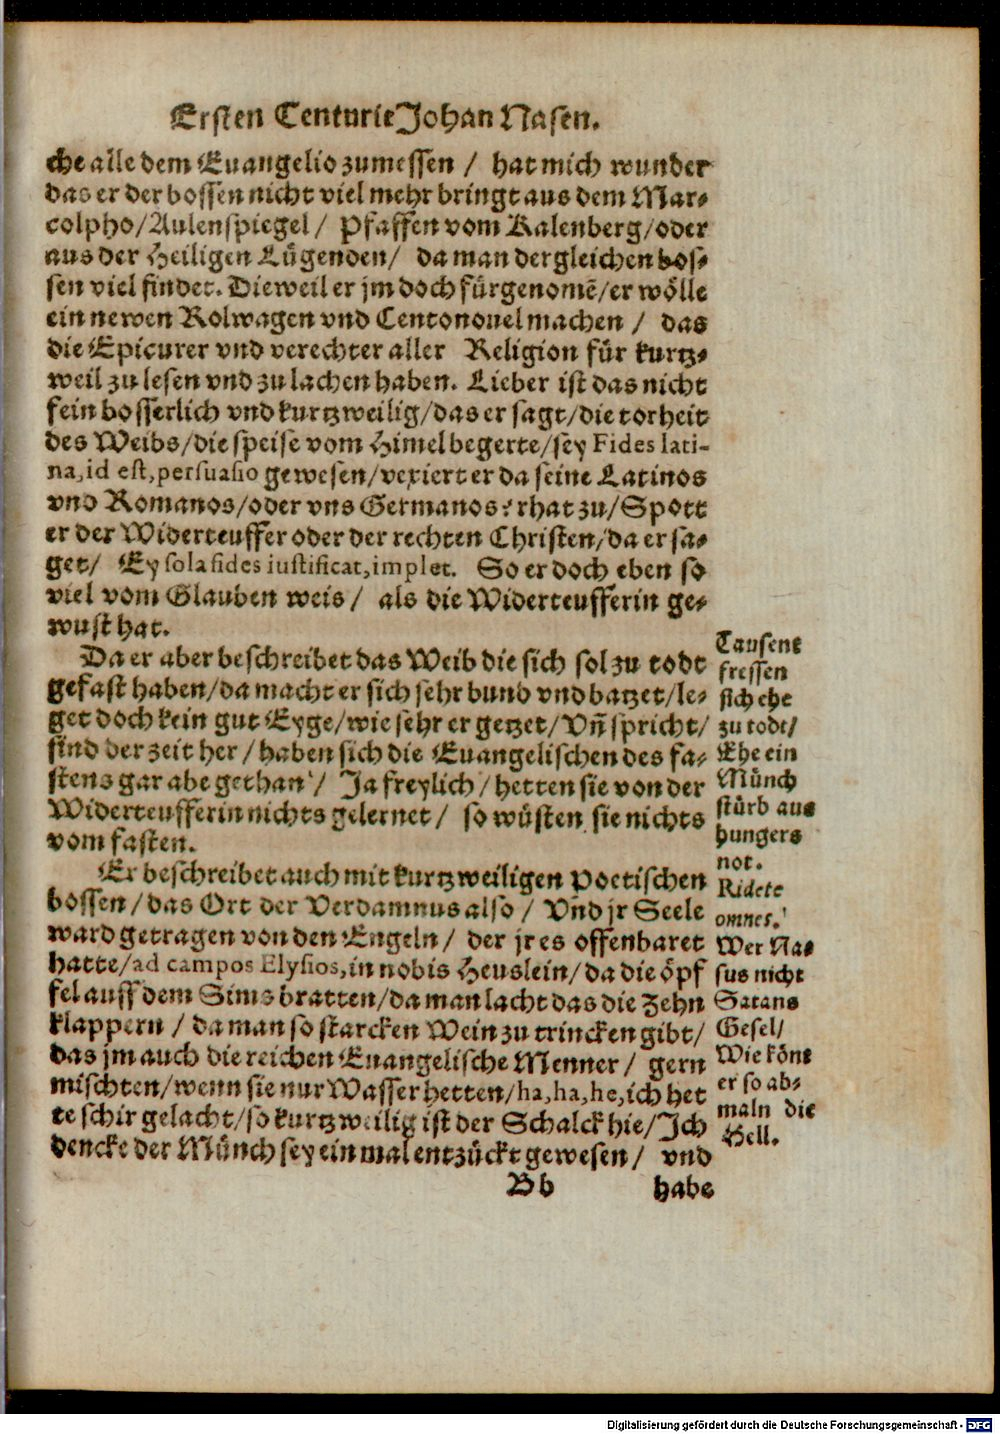 Ersten Centurie Johan Nasen.
che alle dem Euangelio zumessen / hat mich wunder
das er der bossen nicht viel mehr bringt aus dem Mar-
colpho/Aulenspiegel/ Pfaffen vom Kalenberg/oder
aus der Heiligen Lügenden/ da man dergleichen bos-
sen viel findet. Dieweil er jm doch fürgenomẽ/er wölle
ein newen Rolwagen vnd Centonouel machen / das
die Epicurer vnd verechter aller Religion für kurtz-
weil zu lesen vnd zu lachen haben. Lieber ist das nicht
fein bosserlich vnd kurtzweilig/das er sagt/die torheit
des Weibs/die speise vom Himel begerte/sey Fides lati-
na, id est, persuasio gewesen/vexiert er da seine Latinos
vnd Romanos/oder vns Germanos? rhat zu/Spott
er der Widerteuffer oder der rechten Christen/da er sa-
get/ Ey sola fides iustificat, implet. So er doch eben so
viel vom Glauben weis/ als die Widerteufferin ge-
wust hat.
Da er aber beschreibet das Weib die sich sol zu todt
gefast haben/da macht er sich sehr bund vnd batzet/le-
get doch kein gut Eyge/wie sehr er getzet/Vñ spricht/
sind der zeit her/haben sich die Euangelischen des fa-
stens gar abe gethan/ Ja freylich/hetten sie von der
Widerteufferin nichts gelernet/ so wüsten sie nichts
vom fasten.
Er beschreibet auch mit kurtzweiligen Poetischen
bossen/das Ort der Verdamnus also/ Vnd jr Seele
ward getragen von den Engeln/ der jr es offenbaret
hatte/ad campos Elysios, in nobis Heuslein/da die öpf
fel auff dem Sims bratten/da man lacht das die Zehn
klappern / da man so starcken Wein zu trincken gibt/
das jm auch die reichen Euangelische Menner/ gern
mischten/wenn sie nur Wasser hetten/ha, ha, he, ich het
te schir gelacht/so kurtzweilig ist der Schalck hie/Ich
dencke der Münch sey ein mal entzückt gewesen/ vnd
Bb habe
Tausent
fressen
sich ehe
zu todt/
Ehe ein
Münch
stürb aus
hungers
not.
Ridete
omnes.
Wer Na-
sus nicht
Satans
Gesel/
Wie könt
er so ab-
maln die
Hell.
Digitalisierung gefördert durch die Deutsche Forschungsgemeinschaft - DFG